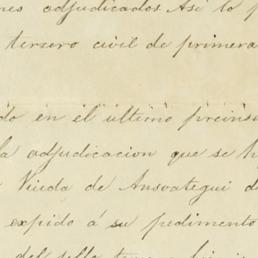 nes adjudicados. Así lo p
tercero civil de primera
do en el último preins
la adjudicacion que se h
Viuda de Ansoategui d
expido á su pedimento
del sello